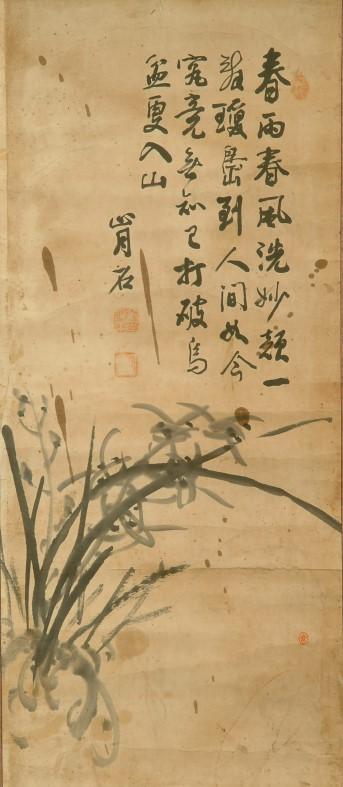 春雨春風洗妙顔一
辞瓊島到人間如今
究竟無知己打破烏
盆更入山
石